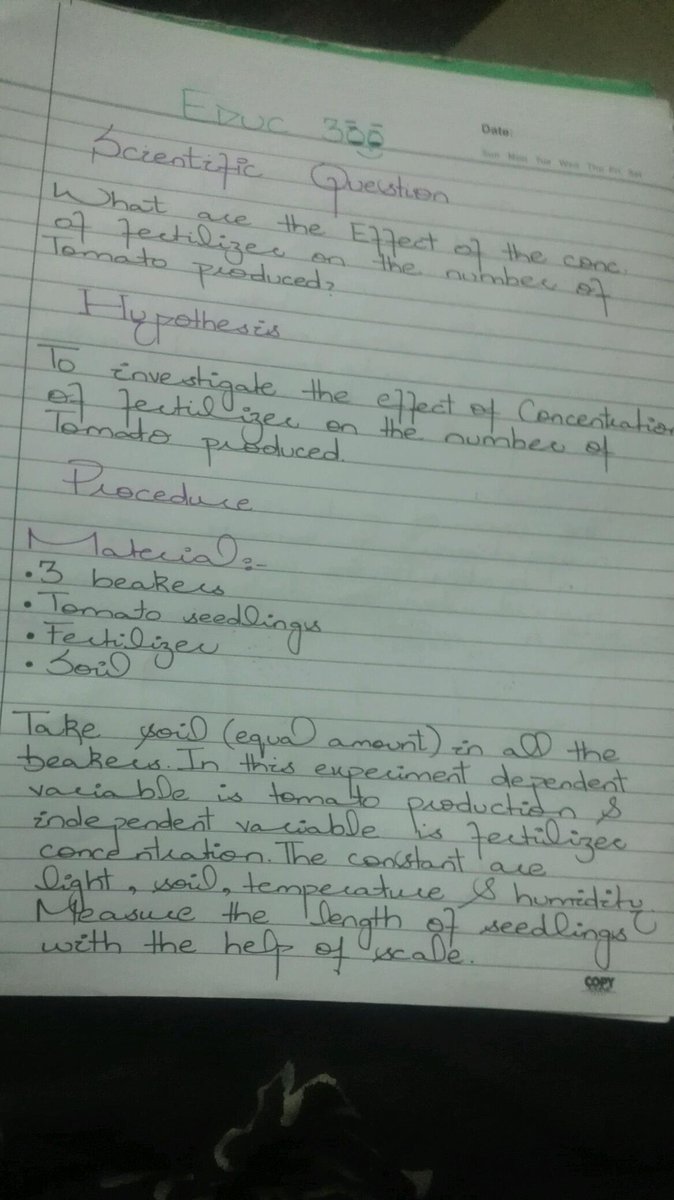 EDUC 300
Date:
Sun Mon Tue Wed Thu Fri Sat
Scientific Question
What are the Effect of the conc.
of fertilizer on the number of
Tomato produced?
Hypothesis
To investigate the effect of Concentration
of fertilizer on the number of
Tomato produced.
Procedure
Material:-
• 3 beakers
• Tomato seedlings
• Fertilizer
• Soil
Take soil (equal amount) in all the
beakers. In this experiment dependent
variable is tomato production &
independent variable is fertilizer
concentration. The constant are
light, soil, temperature & humidity.
Measure the length of seedlings
with the help of scale.
COPY